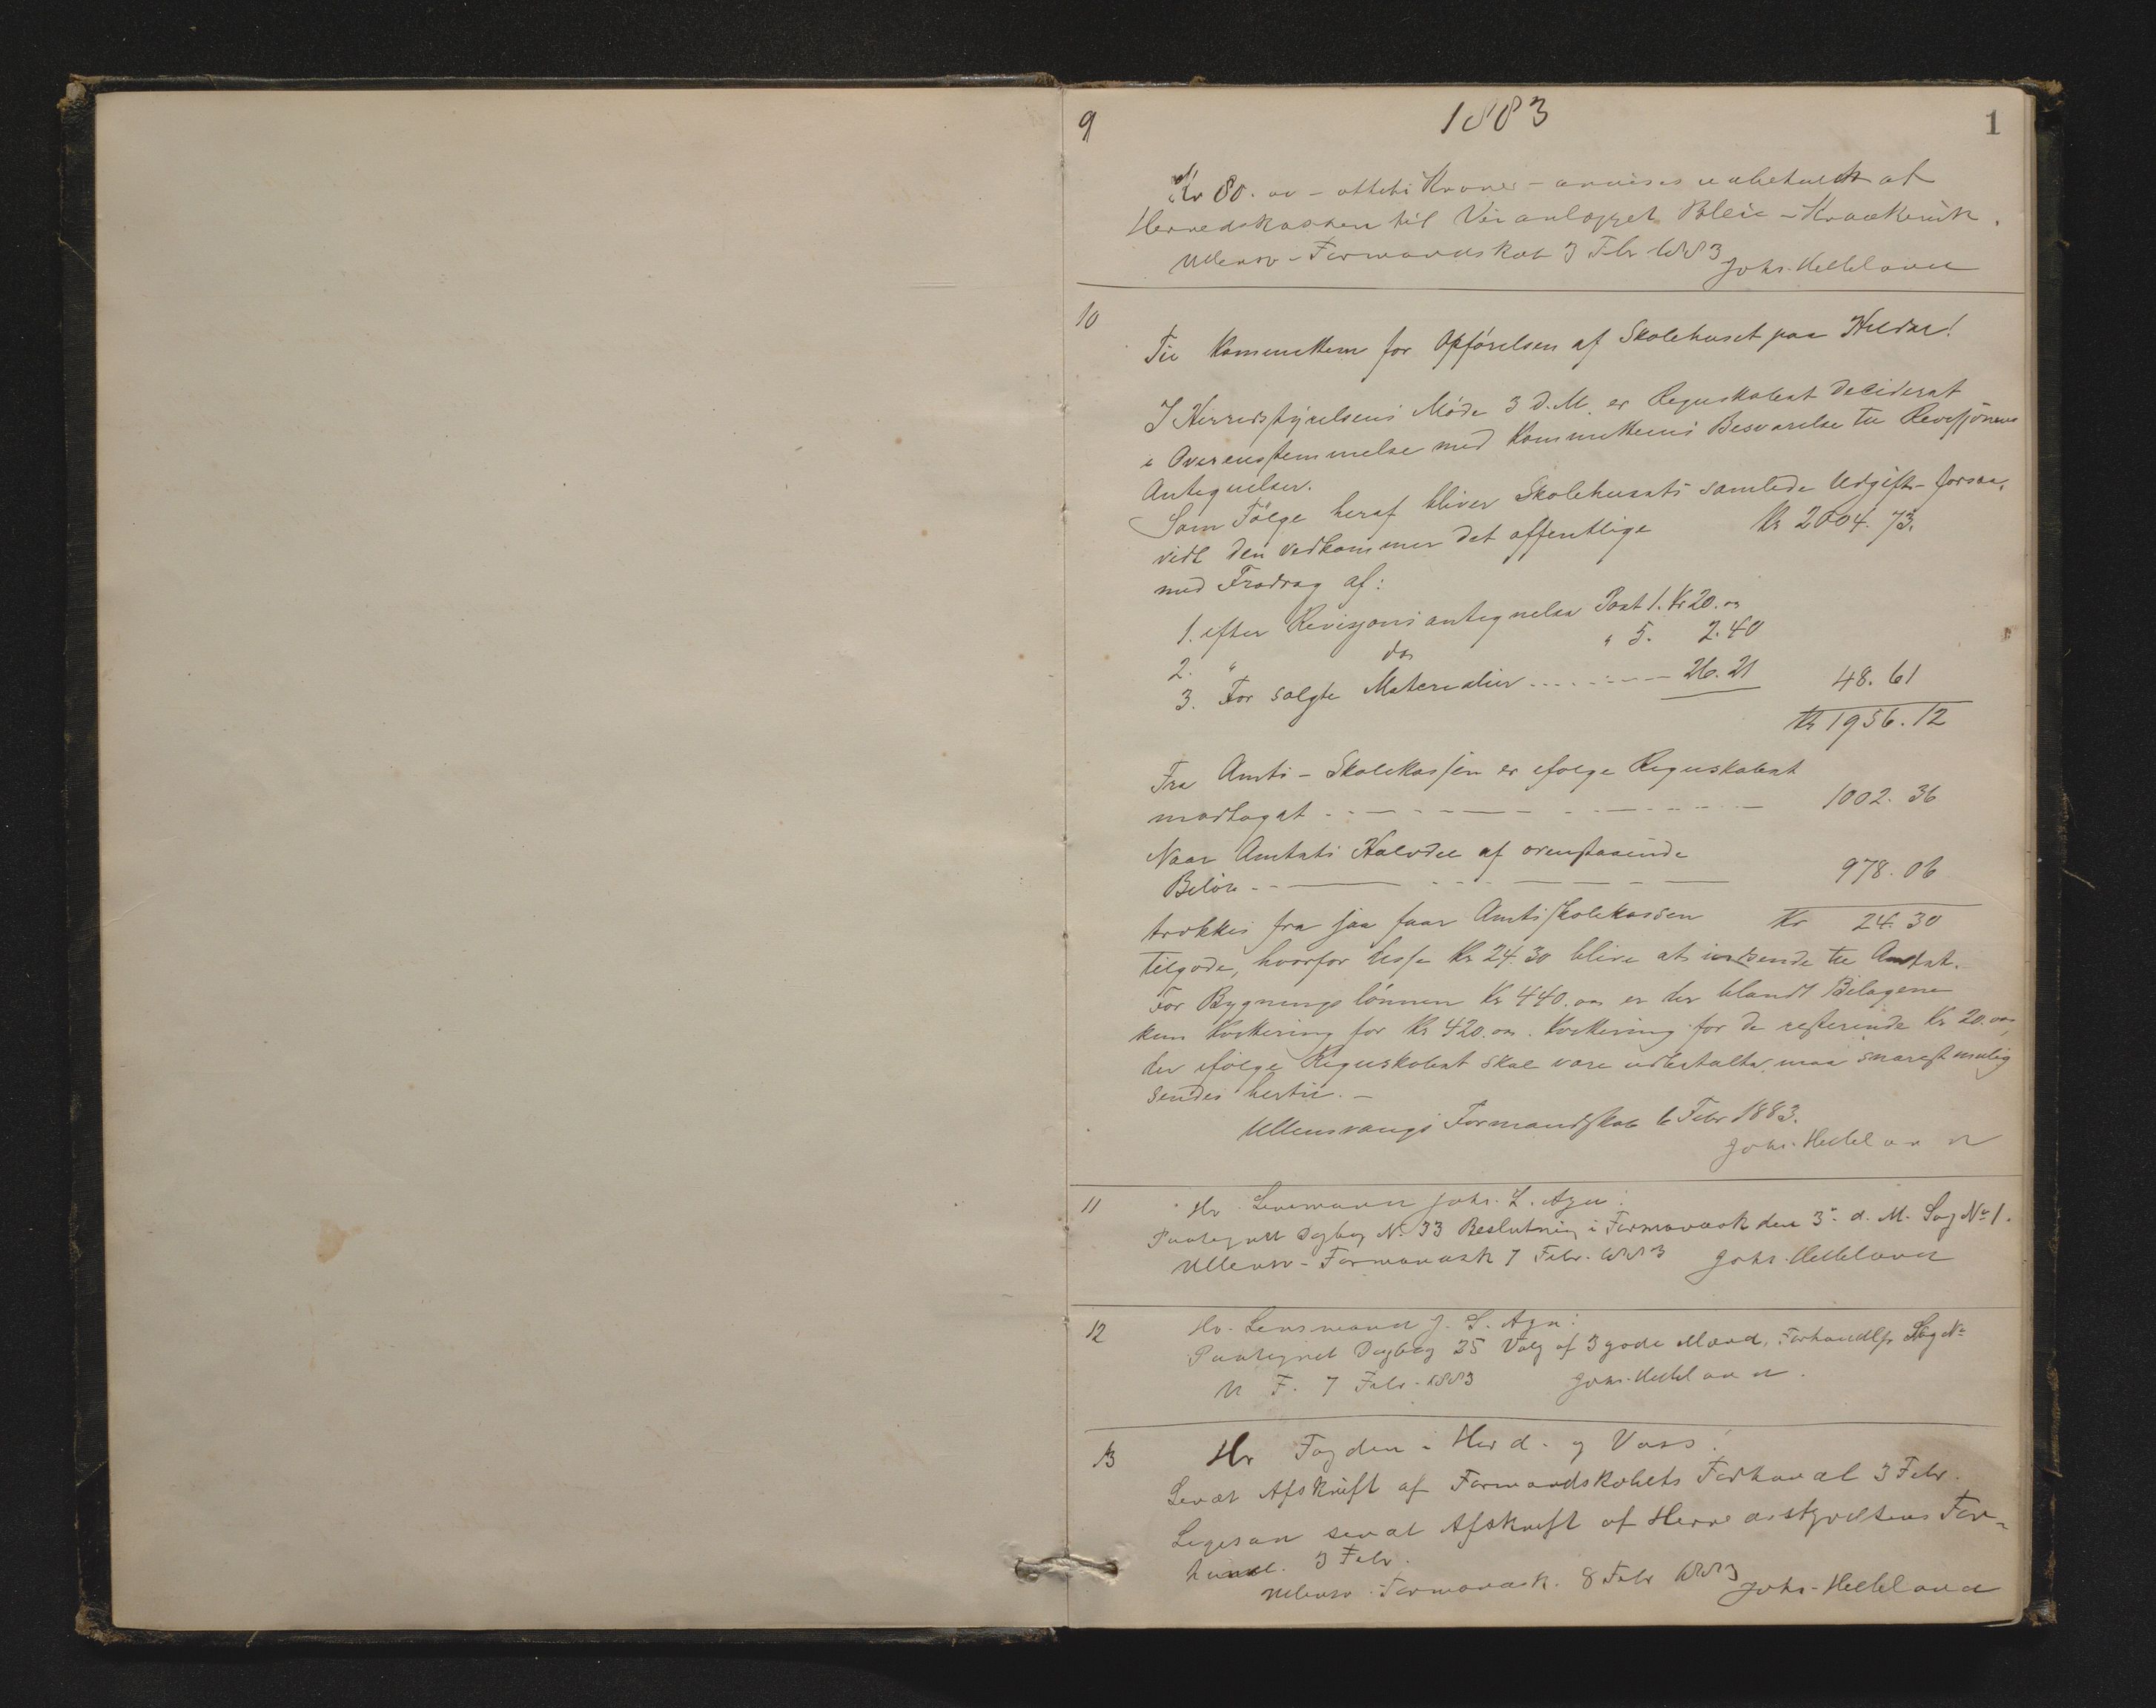 9
1883
1
Kr 80.00 - otteti Kroner - anvises udbetalt af
Herredskassen til Veianlægget Bleie - Kraakevik.
Ullensv. Formandskab 3 Febr 1883
Johs. Helleland
10
Til Kommitteen for Opførelsen af Skolehuset paa Hildal!
I Herredsstyrelsens Møde 3 d. M. er Regnskabet decideret
i Overensstemmelse med Kommitteens Besvarelse til Revisjonens
Antegnelser.
Som Følge heraf bliver Skolehusets samlede Udgift - forsaa-
vidt den vedkommer det offentlige Kr 2004.73.
med Fradrag af:
1. efter Revisjons antegnelse Post 1. Kr 20.00
2. " do " 5. 2.40
3. For solgte Materialier 26.21 48.61
Kr 1956.12
Fra Amts-Skolekassen er ifølge Regnskabet
modtaget 1002.36
Naar Amtets Halvdel af ovenstaaende
Beløb 978.06
trækkes fra saa faar Amtsskolekassen Kr 24.30
tilgode, hvorfor disse Kr 24.30 blive at indsende til Amtet.
For Bygningslønnen Kr 440.00 er der blandt Bilagene
kun Kvittering for Kr 420.00. Kvittering for de resterende Kr 20.00,
der ifølge Regnskabet skal være udbetalte, maa snarest mulig
sendes hertil. -
Ullensvangs Formandskab 6 Febr 1883.
Johs. Helleland
11
Hr Lensmand Johs. L. Aga:
Paategnet Dagbog No 33 Beslutning i Formandsk den 3. d. M. Sag No 1.
Ullensv - Formandsk 7 Febr. 1883 Johs. Helleland
12
Hr. Lensmand J. L. Aga:
Paategnet Dagbog 35 Valg af 3 gode Mænd, Forhandlgs Sag No
U F. 7 Febr. 1883 Johs. Helleland.
13
Hr Fogden i Hard. og Voss!
Sendt Afskrift af Formandskabets Forhandl 3 Febr.
Ligesaa sendt Afskrift af Herredsstyrelsens For-
handl. 3 Febr.
Ullensv. Formandsk. 8 Febr 1883 Johs. Helleland